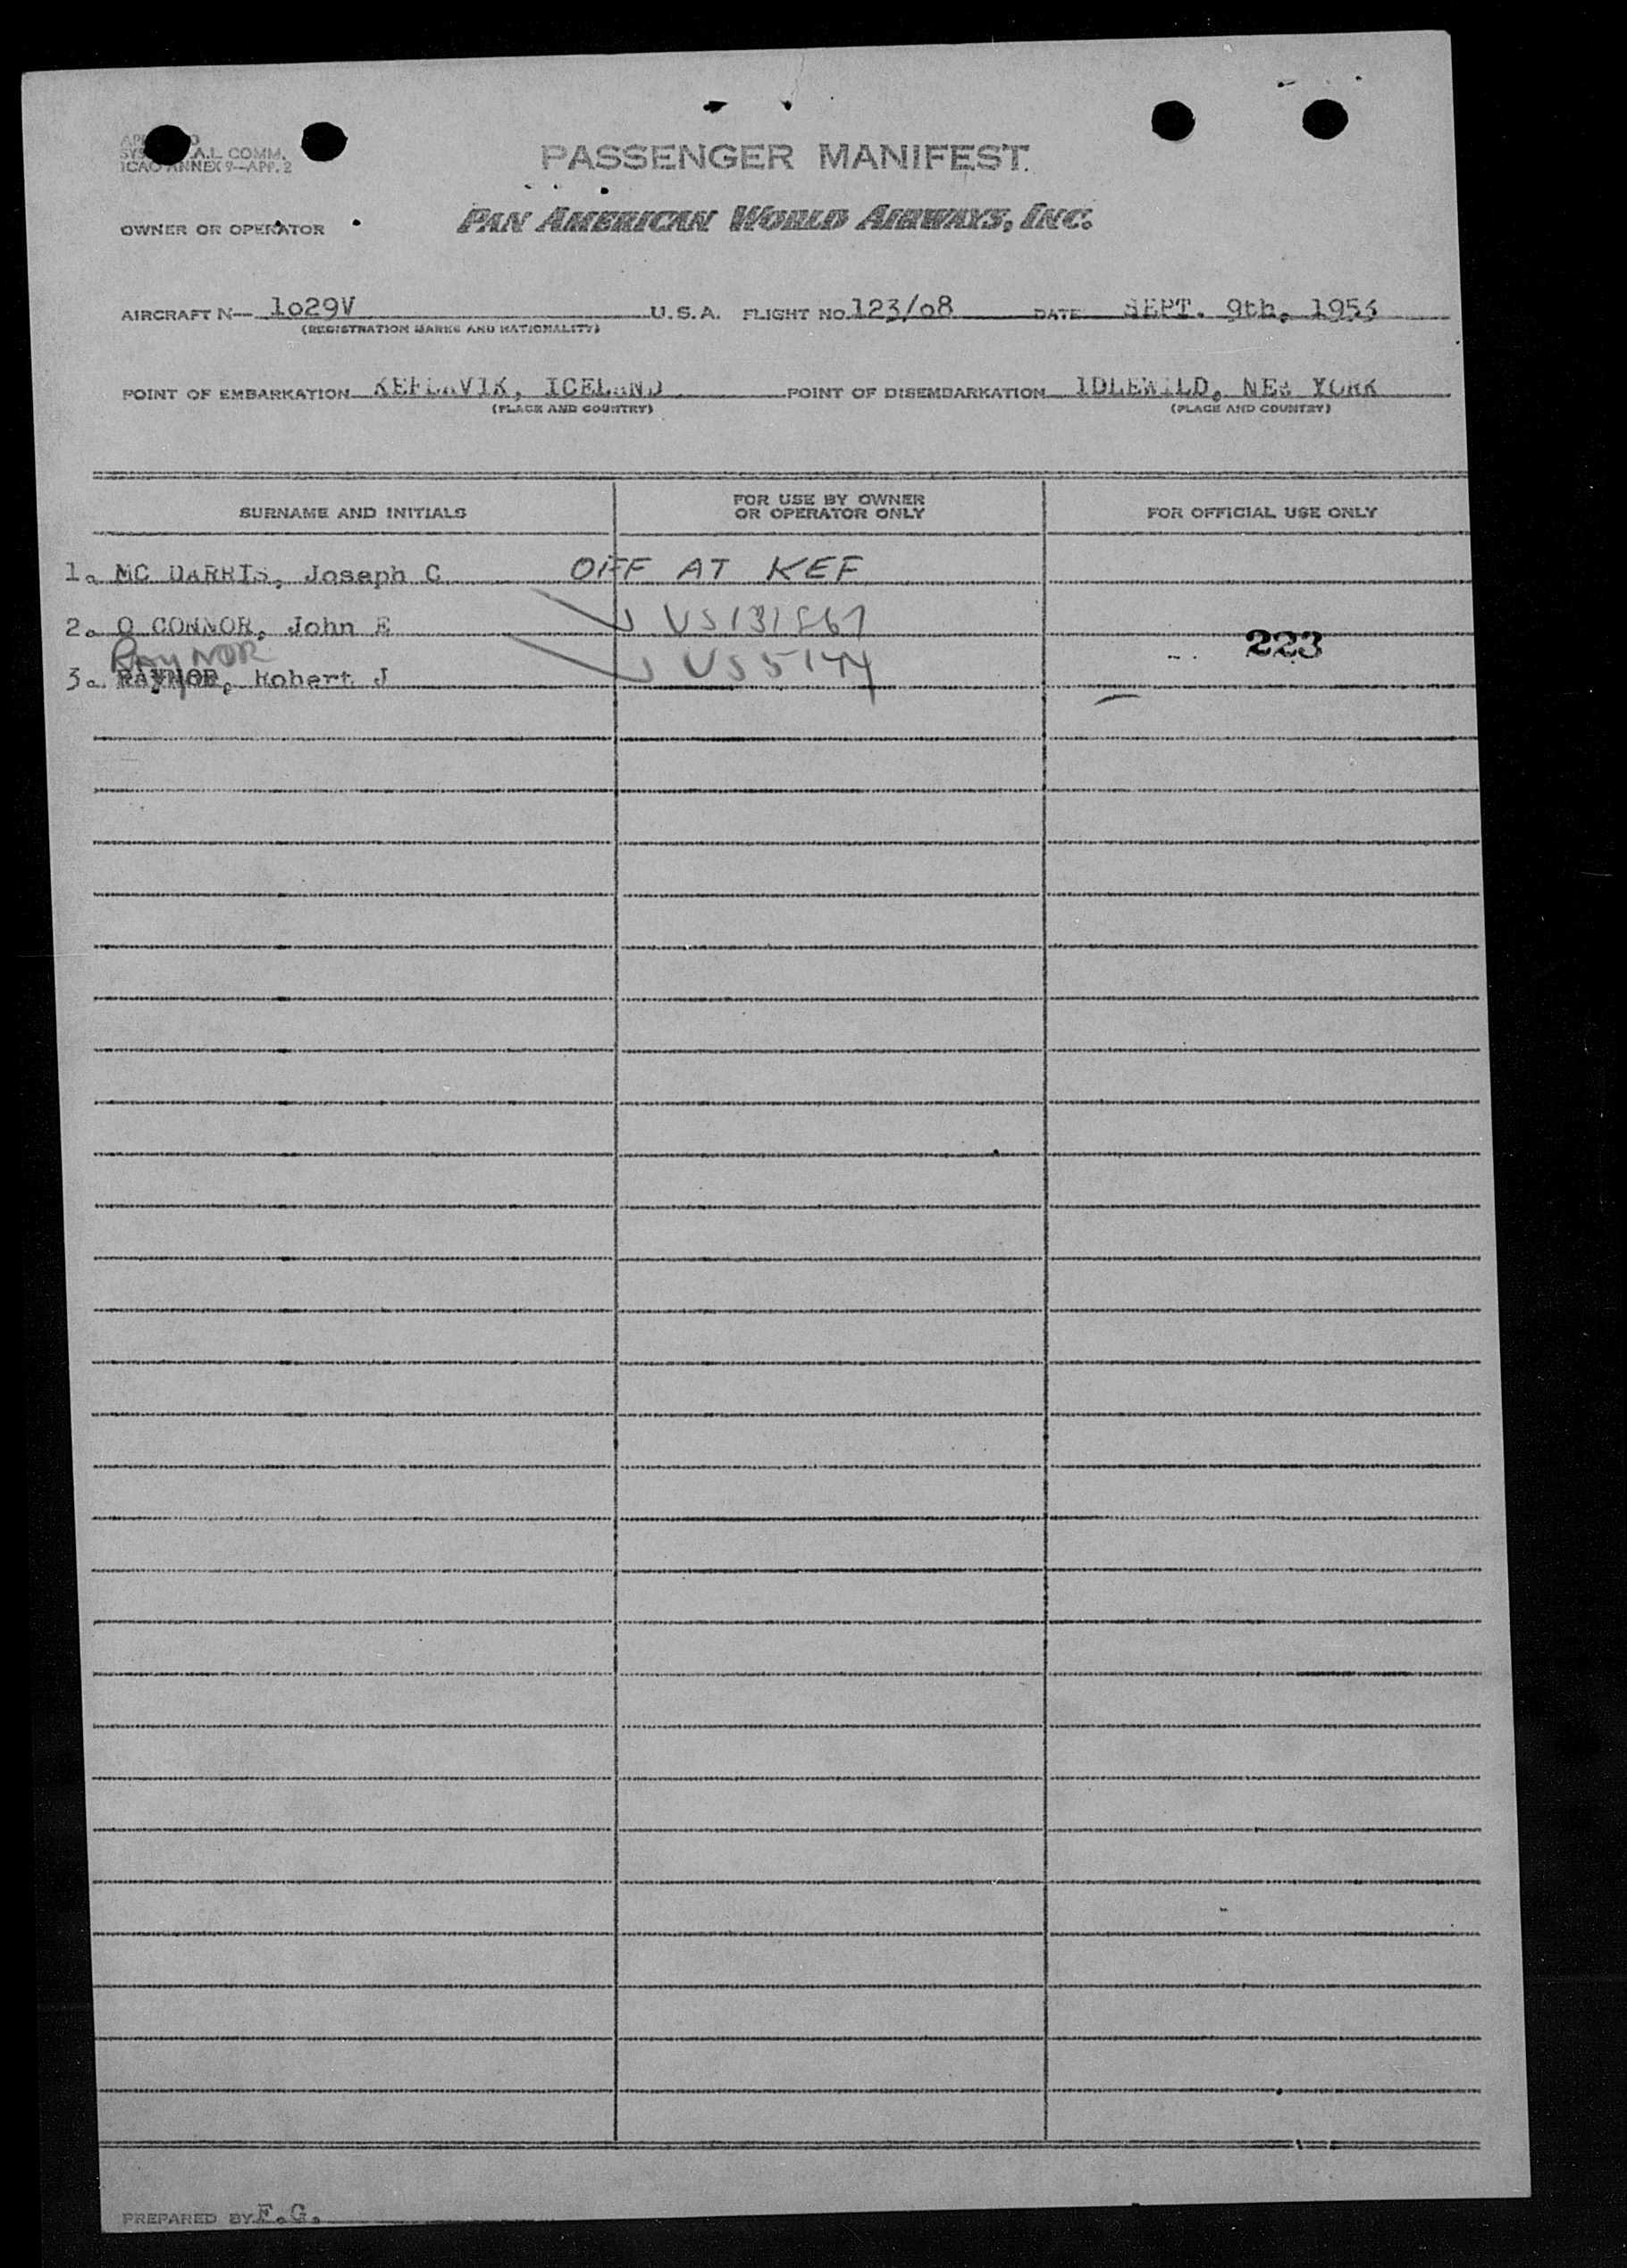 A.L. COMM.
ICAO ANNEX 9—APP. 2
PASSENGER MANIFEST
OWNER OR OPERATOR PAN AMERICAN WORLD AIRWAYS, INC.
AIRCRAFT N— 1o29V U.S.A. FLIGHT NO. 123/o8 DATE SEPT. 9th, 1953
(REGISTRATION MARKS AND NATIONALITY)
POINT OF EMBARKATION KEFLAVIK, ICELAND POINT OF DISEMBARKATION IDLEWILD, NEW YORK
(PLACE AND COUNTRY) (PLACE AND COUNTRY)
SURNAME AND INITIALS FOR USE BY OWNER OR OPERATOR ONLY FOR OFFICIAL USE ONLY
1. MC DARRIS, Joseph C OFF AT KEF
2. O CONNOR, John E US131867
223
RAYNOR
3. RAYNOR, Robert J US5144
PREPARED BY F.G.